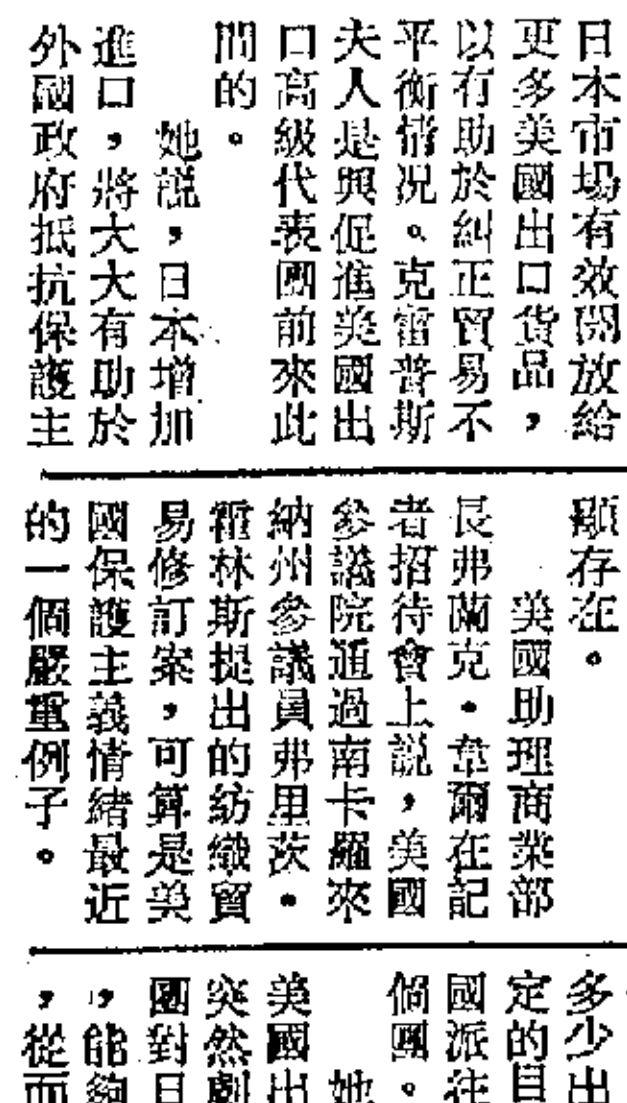 日本市場有效開放給
更多美國出口貨品，
以有助於糾正貿易不
平衡情况。克雷普斯
夫人是與促進美國出
口高級代表團前來此
間的。
她説，日本增加
進口，將大大有助於
外國政府抵抗保護主
顯存在。
美國助理商業部
長弗蘭克·韋爾在記
者招待會上説，美國
參議院通過南卡羅來
納州參議員弗里茨·
霍林斯提出的紡織貿
易修訂案，可算是美
國保護主義情緒最近
的一個嚴重例子。
多少出
定的目
國派往
個團。
她
美國出
突然劇
團對日
，能夠
，從而